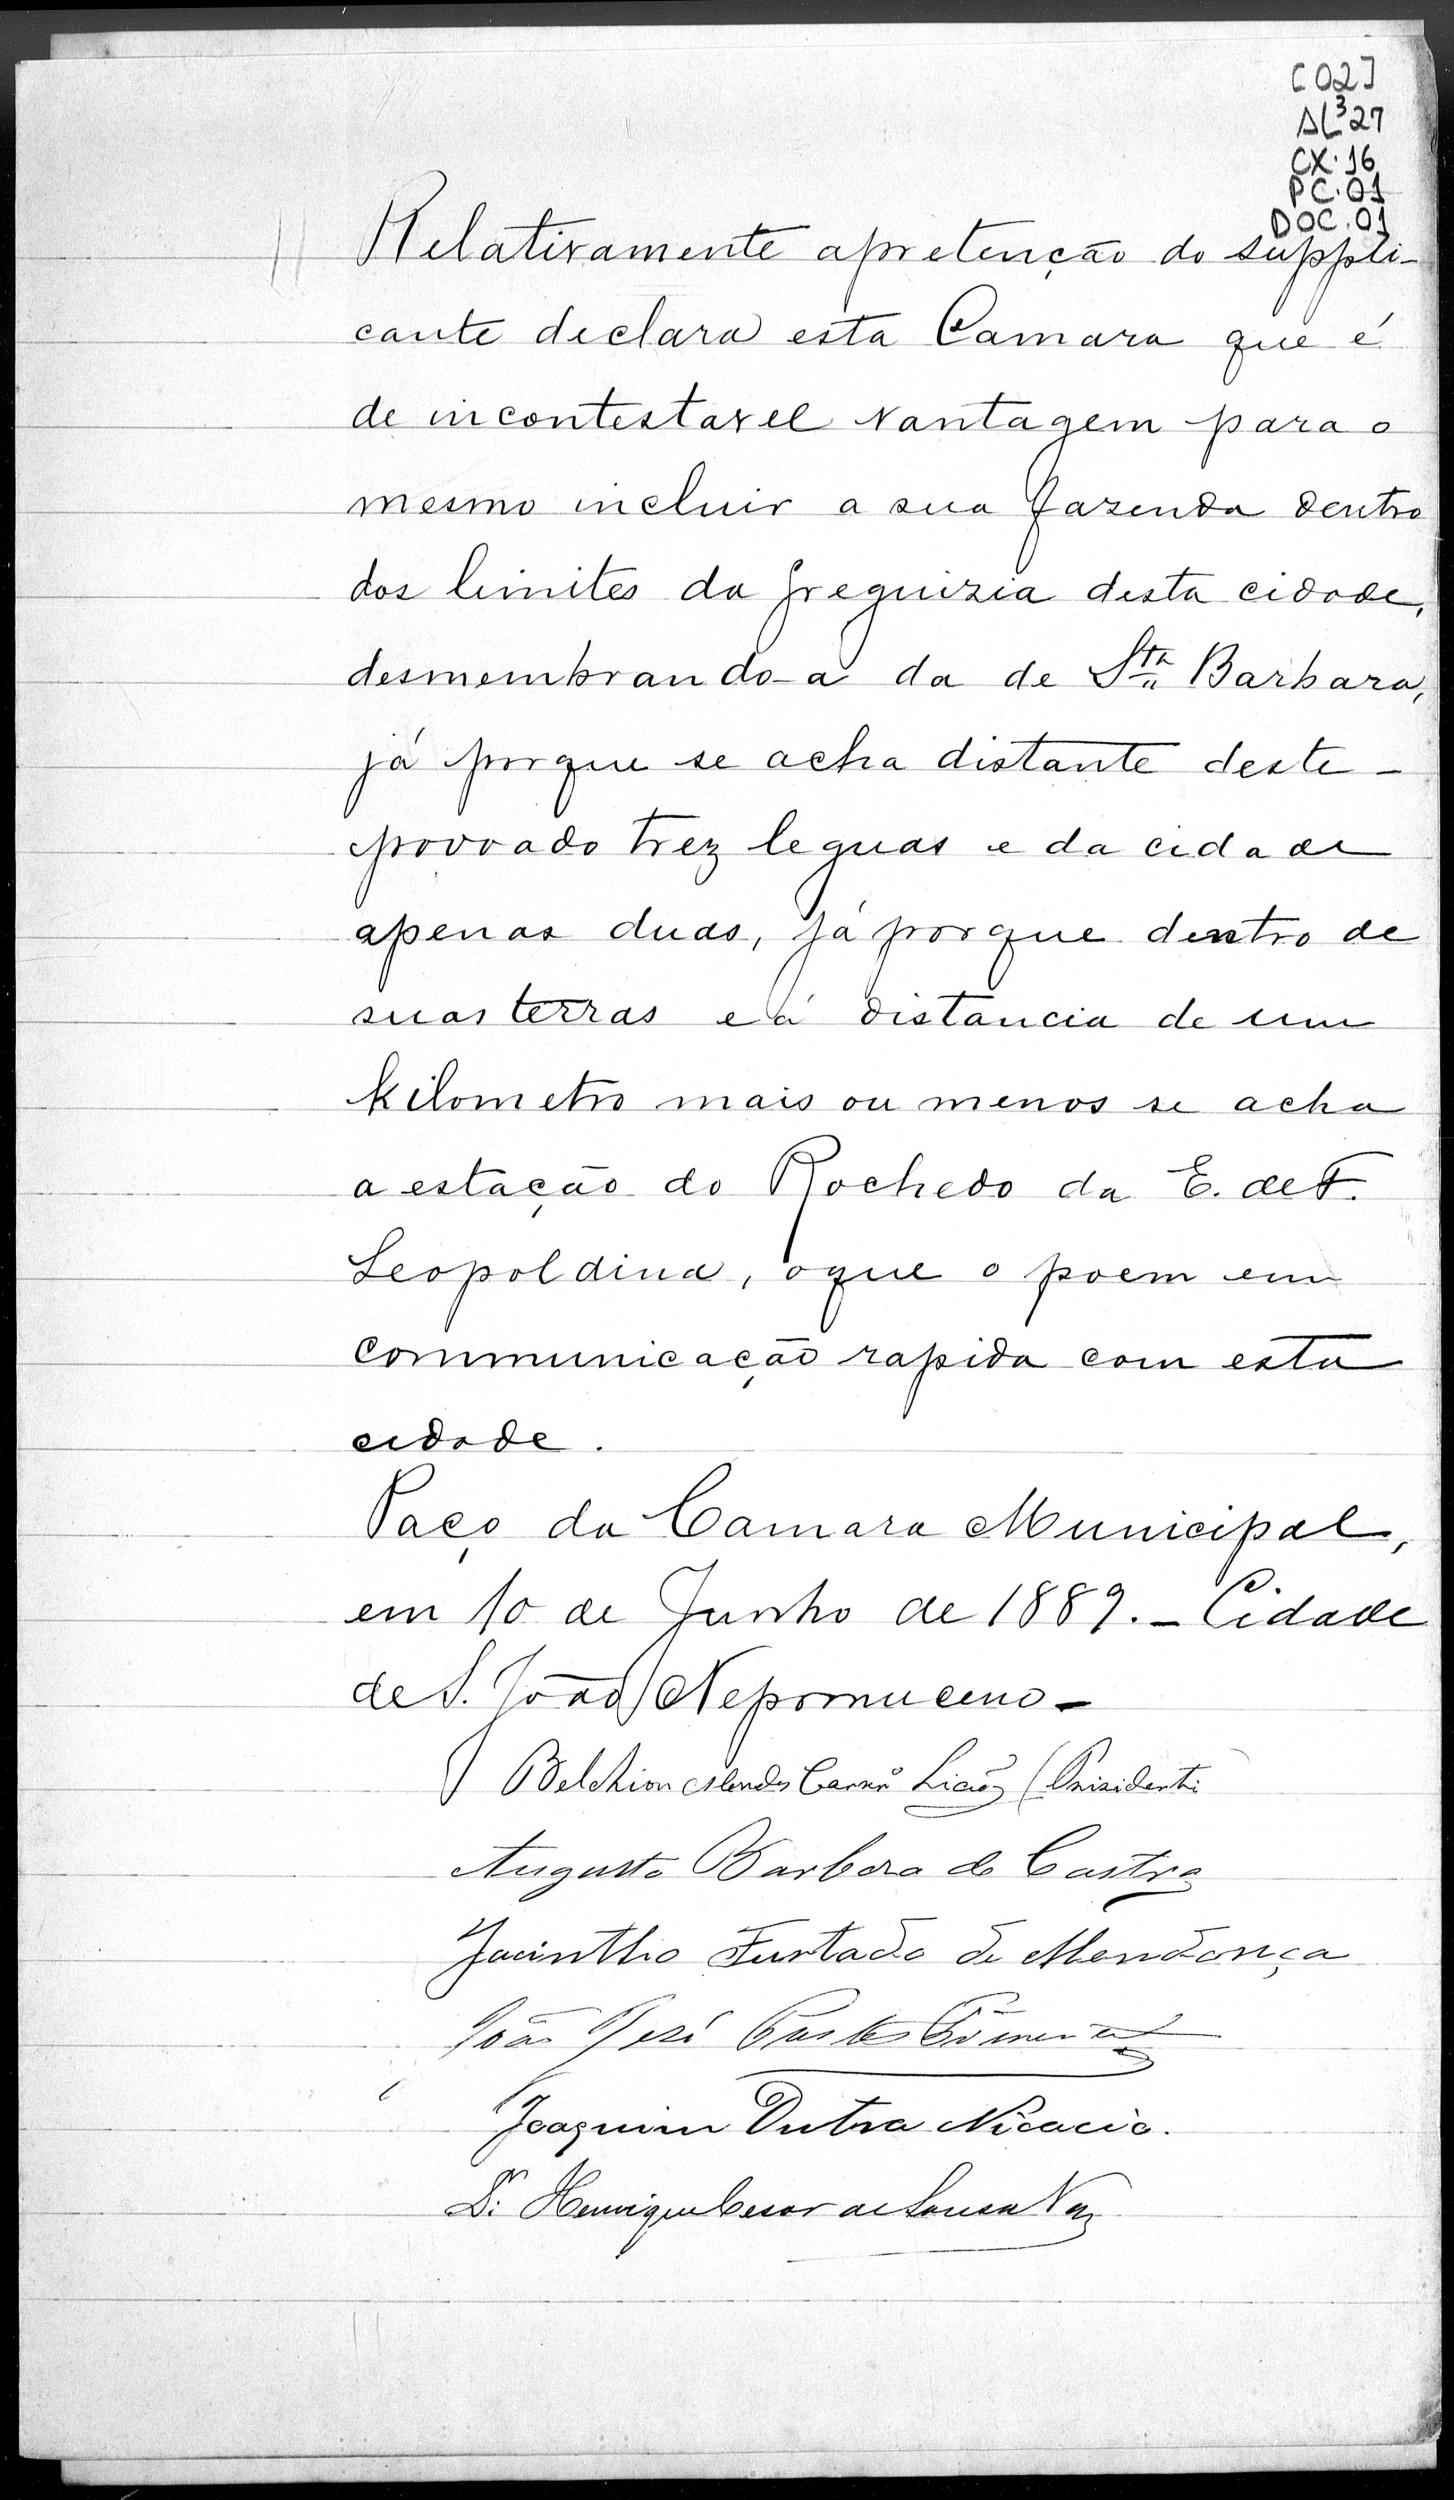 [02]
AL³27
CX.16
PC.01
DOC.01
Relativamente apretenção do suppli-
cante declara esta Camara que é
de incontestavel vantagem para o
mesmo incluir a sua fazenda dentro
dos limites da freguizia desta cidade,
desmembrando-a da de Sta Barbara,
já porque se acha distante deste -
povoado trez leguas e da cidade
apenas duas, já porque dentro de
suas terras e á distancia de um
kilometro mais ou menos se acha
a estação do Rochedo da E. de F.
Leopoldina, o que o poem em
communicação rapida com esta
cidade.
Paço da Camara Municipal,
em 10 de Junho de 1889. - Cidade
de S. João Nepomuceno -
Belchior Mendes (Prisidente
Augusto Barbosa de Castro
Jacintho Furtado de Mendonça
João José
Joaquim Dutra Nicacio.
Dr. Henrique Cesar de Sousa Vaz